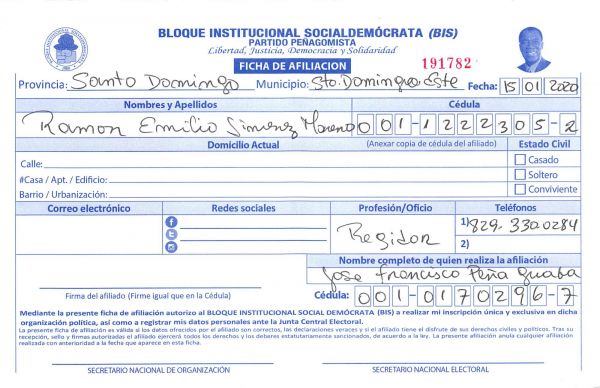 BLOQUE INSTITUCIONAL SOCIALDEMÓCRATA (BIS)
PARTIDO PEÑAGOMISTA
Libertad, Justicia, Democracia y Solidaridad
FICHA DE AFILIACION 191782
Provincia: Santo Domingo Municipio: Sto. Domingo Este Fecha: 15 01 2020
Nombres y Apellidos Cédula
Ramon Emilio Simenez Moreno 001-1222305-2
Domicilio Actual (Anexar copia de cédula del afiliado) Estado Civil
Calle: Casado
#Casa / Apt. / Edificio: Soltero
Barrio / Urbanización: Conviviente
Correo electrónico Redes sociales Profesión/Oficio Teléfonos
Regidor 1) 829-330.0284
2)
Nombre completo de quien realiza la afiliación
Jose Francisco Peña Guaba
Firma del afiliado (Firme igual que en la Cédula) Cédula: 001-0170296-7
Mediante la presente ficha de afiliación autorizo al BLOQUE INSTITUCIONAL SOCIAL DEMÓCRATA (BIS) a realizar mi inscripción única y exclusiva en dicha
organización política, así como a registrar mis datos personales ante la Junta Central Electoral.
La presente ficha de afiliación es válida si los datos ofrecidos por el afiliado son correctos, las declaraciones veraces y si el afiliado tiene el disfrute de sus derechos civiles y políticos. Tras su
recepción, sello y firmas autorizadas el afiliado ejercerá todos los derechos y los deberes estatutariamente sancionados, de acuerdo a la ley. La presente afiliación anula cualquier afiliación
realizada con anterioridad a la fecha que aparece en esta ficha.
SECRETARIO NACIONAL DE ORGANIZACIÓN SECRETARIO NACIONAL ELECTORAL